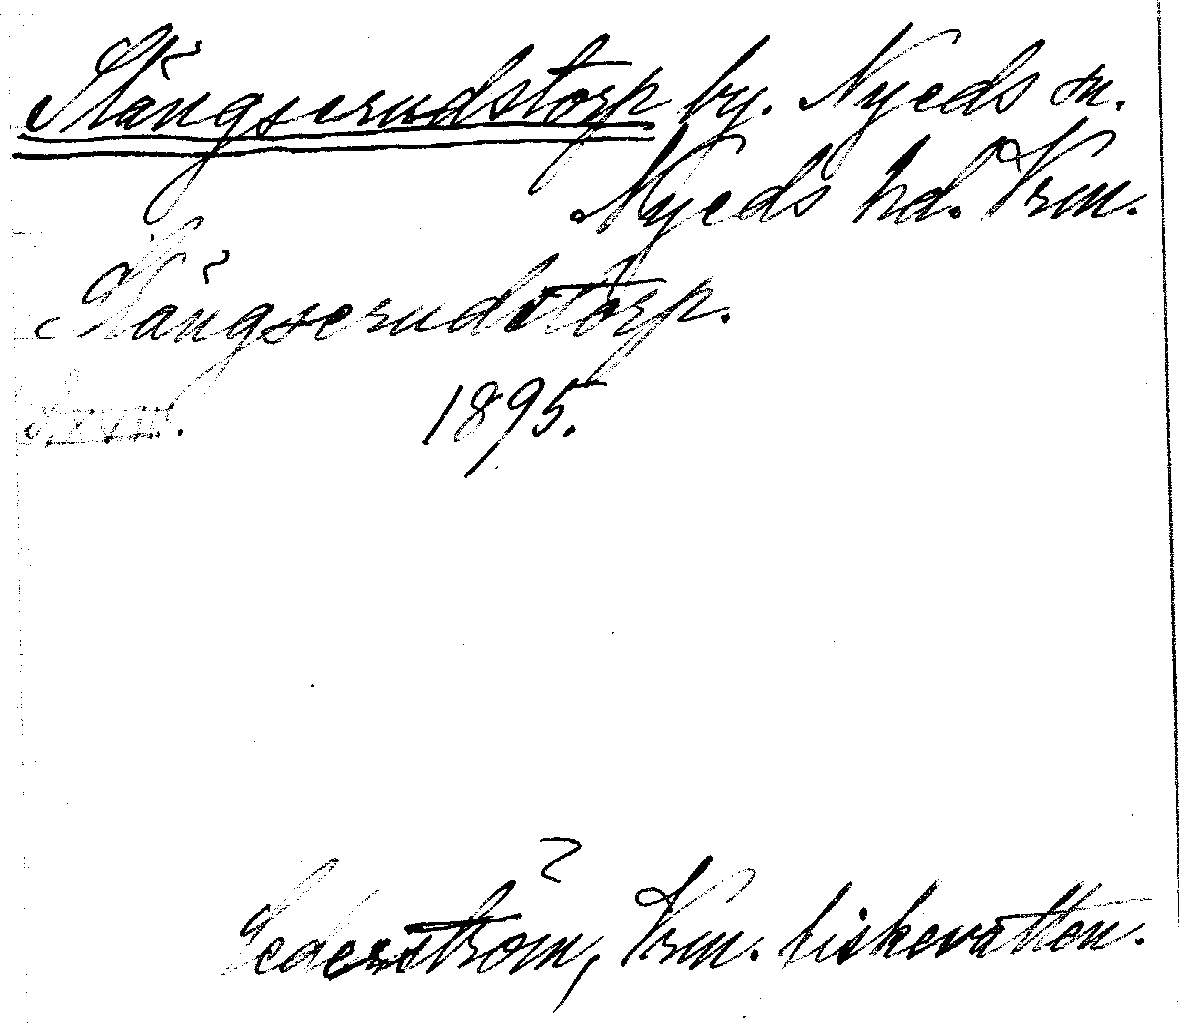 Stångserudstorp by. Nyeds sn.
Nyeds hd. Vrm.
Stångserudstorp.
1895.
Cederström, Vrm. fiskevatten.